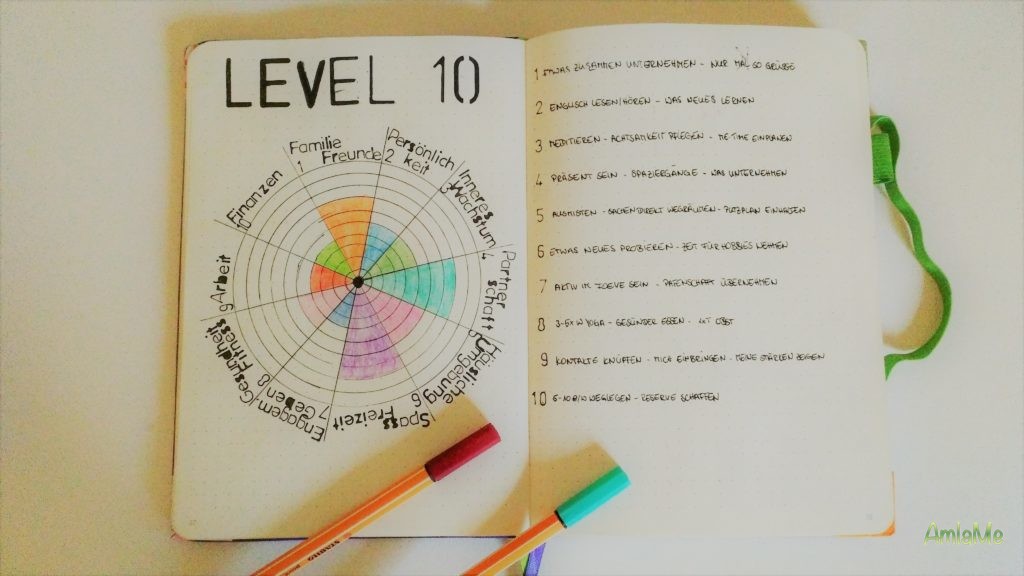 LEVEL 10
Familie
Freunde
1
Persönlich
keit
2
Inneres
Wachstum
3
Partner
schaft
4
Häusliche
Umgebung
5
Spass
Freizeit
6
Engagem.
Geben
7
Gesundheit
Fitness
8
Arbeit
9
Finanzen
10
1 ETWAS ZUSAMMEN UNTERNEHMEN - NUR MAL SO GRÜSSE
2 ENGLISCH LESEN/HÖREN - WAS NEUES LERNEN
3 MEDITIEREN - ACHTSAMKEIT PFLEGEN - ME TIME EINPLANEN
4 PRÄSENT SEIN - SPAZIERGÄNGE - WAS UNTERNEHMEN
5 AUSMISTEN - SACHEN DIREKT WEGRÄUMEN - PUTZPLAN EINHALTEN
6 ETWAS NEUES PROBIEREN - ZEIT FÜR HOBBIES NEHMEN
7 AKTIV IN SEIN - PATENSCHAFT ÜBERNEHMEN
8 3-5X W YOGA - GESÜNDER ESSEN - OBST
9 KONTAKTE KNÜPFEN - MICH EINBRINGEN - MEINE STÄRKEN ZEIGEN
10 WEGLEGEN - RESERVE SCHAFFEN
STABILO
AmiaMe